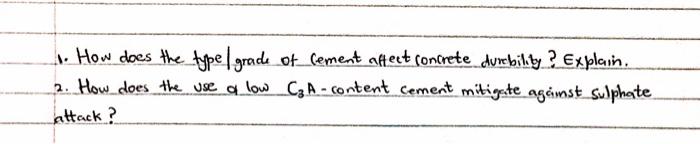 1. How does the type/grade of Cement affect concrete durability? Explain.
2. How does the use of low C₃A-content cement mitigate against sulphate
attack?